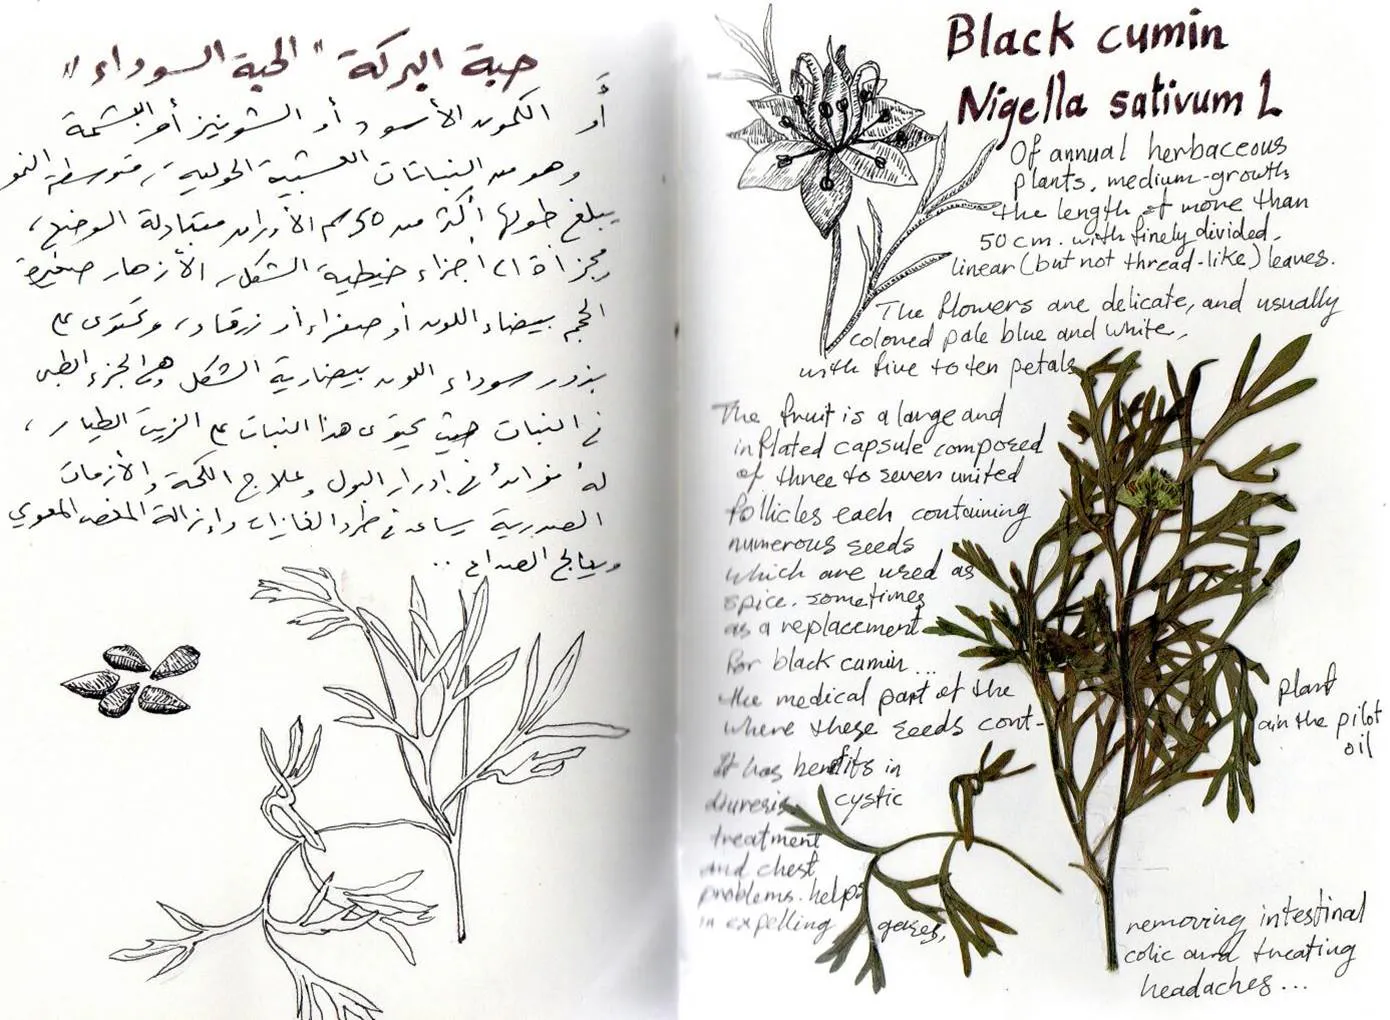 حبة البركة "الحبة السوداء"
أو الكمون الأسود أو الشونيز أو البشمة
وهو من النباتات العشبية الحولية، متوسطة النمو
يبلغ طولها أكثر من 50 سم الأوراق متبادلة الوضع،
مجزأة الى أجزاء خيطية الشكل، الأزهار صغيرة
الحجم بيضاء اللون أو صفراء أو زرقاء، وتحتوى على
بذور سوداء اللون بيضاوية الشكل وهى الجزء الطبى
فى النبات حيث يحتوى هذا النبات على الزيت الطيار،
له فوائد فى إدرار البول وعلاج الكحة والأزمات
الصدرية يساعد فى طرد الغازات وإزالة المغص المعوي
ويعالج الصداع ..
Black cumin
Nigella sativum L
Of annual herbaceous
plants, medium-growth,
the length of more than
50 cm. with finely divided,
linear (but not thread-like) leaves.
The flowers are delicate, and usually
colored pale blue and white,
with five to ten petals
The fruit is a large and
inflated capsule composed
of three to seven united
follicles each containing
numerous seeds
which are used as
spice. sometimes
as a replacement
for black cumin...
the medical part of the plant
where these seeds cont- ain the pilot
oil
It has benefits in
diuresis, cystic
treatment
and chest
problems. helps
in expelling gases,
removing intestinal
colic and treating
headaches...